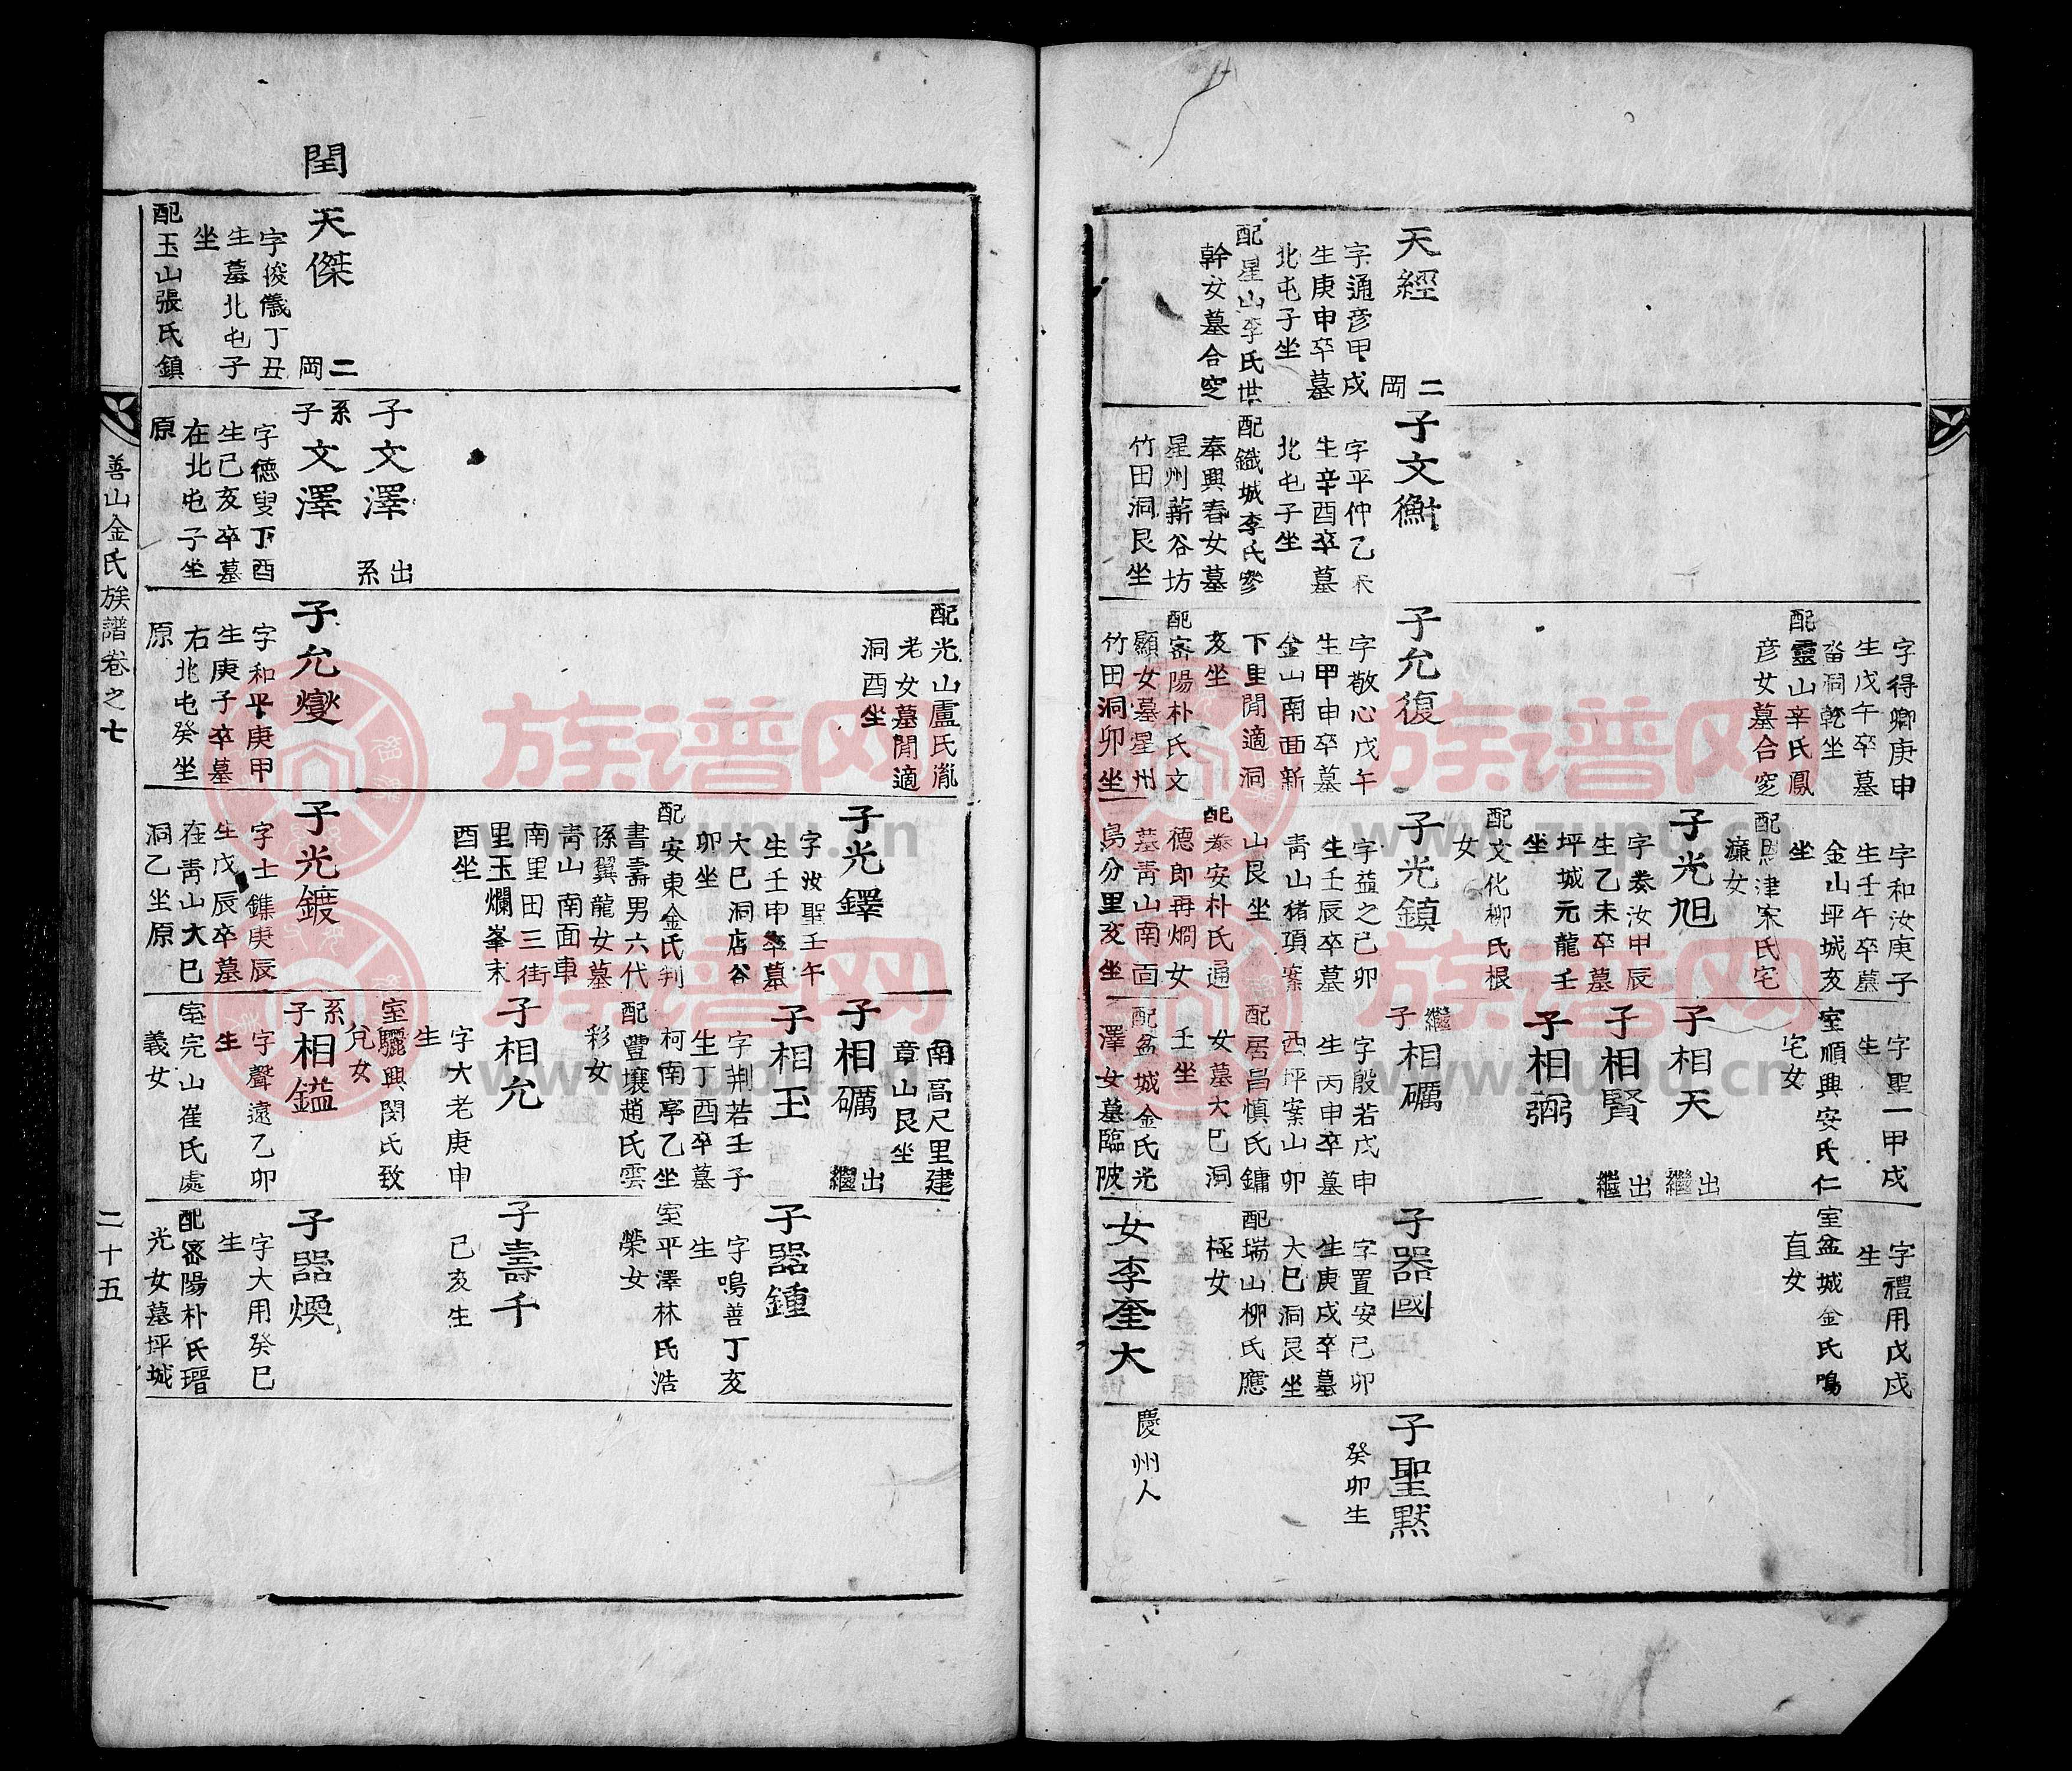 天經
二
岡
字通彦甲戌
生庚申卒墓
北屯子坐
配星山李氏世
幹女墓合窆
子文衡
字平仲乙未
生辛酉卒墓
北屯子坐
配鐵城李氏嵾
奉興春女墓
星州薪谷坊
竹田洞艮坐
字得卿庚申
生戊午卒墓
畓洞乾坐
配靈山辛氏鳳
彦女墓合窆
子允復
字敬心戊午
生甲申卒墓
金山南面新
下里閒適洞
亥坐
配密陽朴氏文
顯女墓星州
竹田洞卯坐
字和汝庚子
生壬午卒墓
金山坪城亥
坐
配恩津宋氏宅
濂女
子光旭
字泰汝甲辰
生乙未卒墓
坪城元龍壬
坐
配文化柳氏根
女
子光鎮
字益之己卯
生壬辰卒墓
靑山猪項案
山艮坐
配泰安朴氏通
德郎再烱女
墓靑山南面
烏分里亥坐
字聖一甲戌
生
室順興安氏仁
宅女
子相天
出
繼
子相賢
出
繼
子相弼
繼
子相礪
字殷若戊申
生丙申卒墓
西坪案山卯
配居昌愼氏鏞
女墓大巳洞
壬坐
配盆城金氏光
澤女墓臨陂
字禮用戊戌
生
室盆城金氏鳴
直女
子器國
字置安己卯
生庚戌卒墓
大巳洞艮坐
配瑞山柳氏應
極女
女李奎大
子聖黙
癸卯生
慶州人
閏
天傑
二
岡
字俊儀丁丑
生墓北屯子
坐
配玉山張氏鎮
子文澤
出
系
系
子文澤
字德叟丁酉
生己亥卒墓
在北屯子坐
原
配光山盧氏胤
老女墓閒適
洞酉坐
子允燮
字和平庚甲
生庚子卒墓
右北屯癸坐
原
子光鐸
字汝聖壬午
生壬申卒墓
大巳洞店谷
卯坐
配安東金氏判
書壽男六代
孫翼龍女墓
靑山南面車
南里田三街
里玉爛峯末
酉坐
子光鍍
字士鏶庚辰
生戊辰卒墓
在靑山大巳
洞乙坐原
南高尺里建
章山艮坐
子相礪
出
繼
子相玉
字荆若壬子
生丁酉卒墓
柯南亭乙坐
配豐壤趙氏雲
彩女
子相允
字大老庚申
生
室驪興閔氏致
允女
系
子相鎰
字聲遠乙卯
生
室完山崔氏處
義女
子器鍾
字鳴善丁亥
生
室平澤林氏浩
榮女
子壽千
己亥生
子器煥
字大用癸巳
生
配密陽朴氏瑨
光女墓坪城
善山金氏族譜卷之七
二十五
族谱网
www.zupu.cn
族谱网
www.zupu.cn
族谱网
www.zupu.cn
族谱网
www.zupu.cn